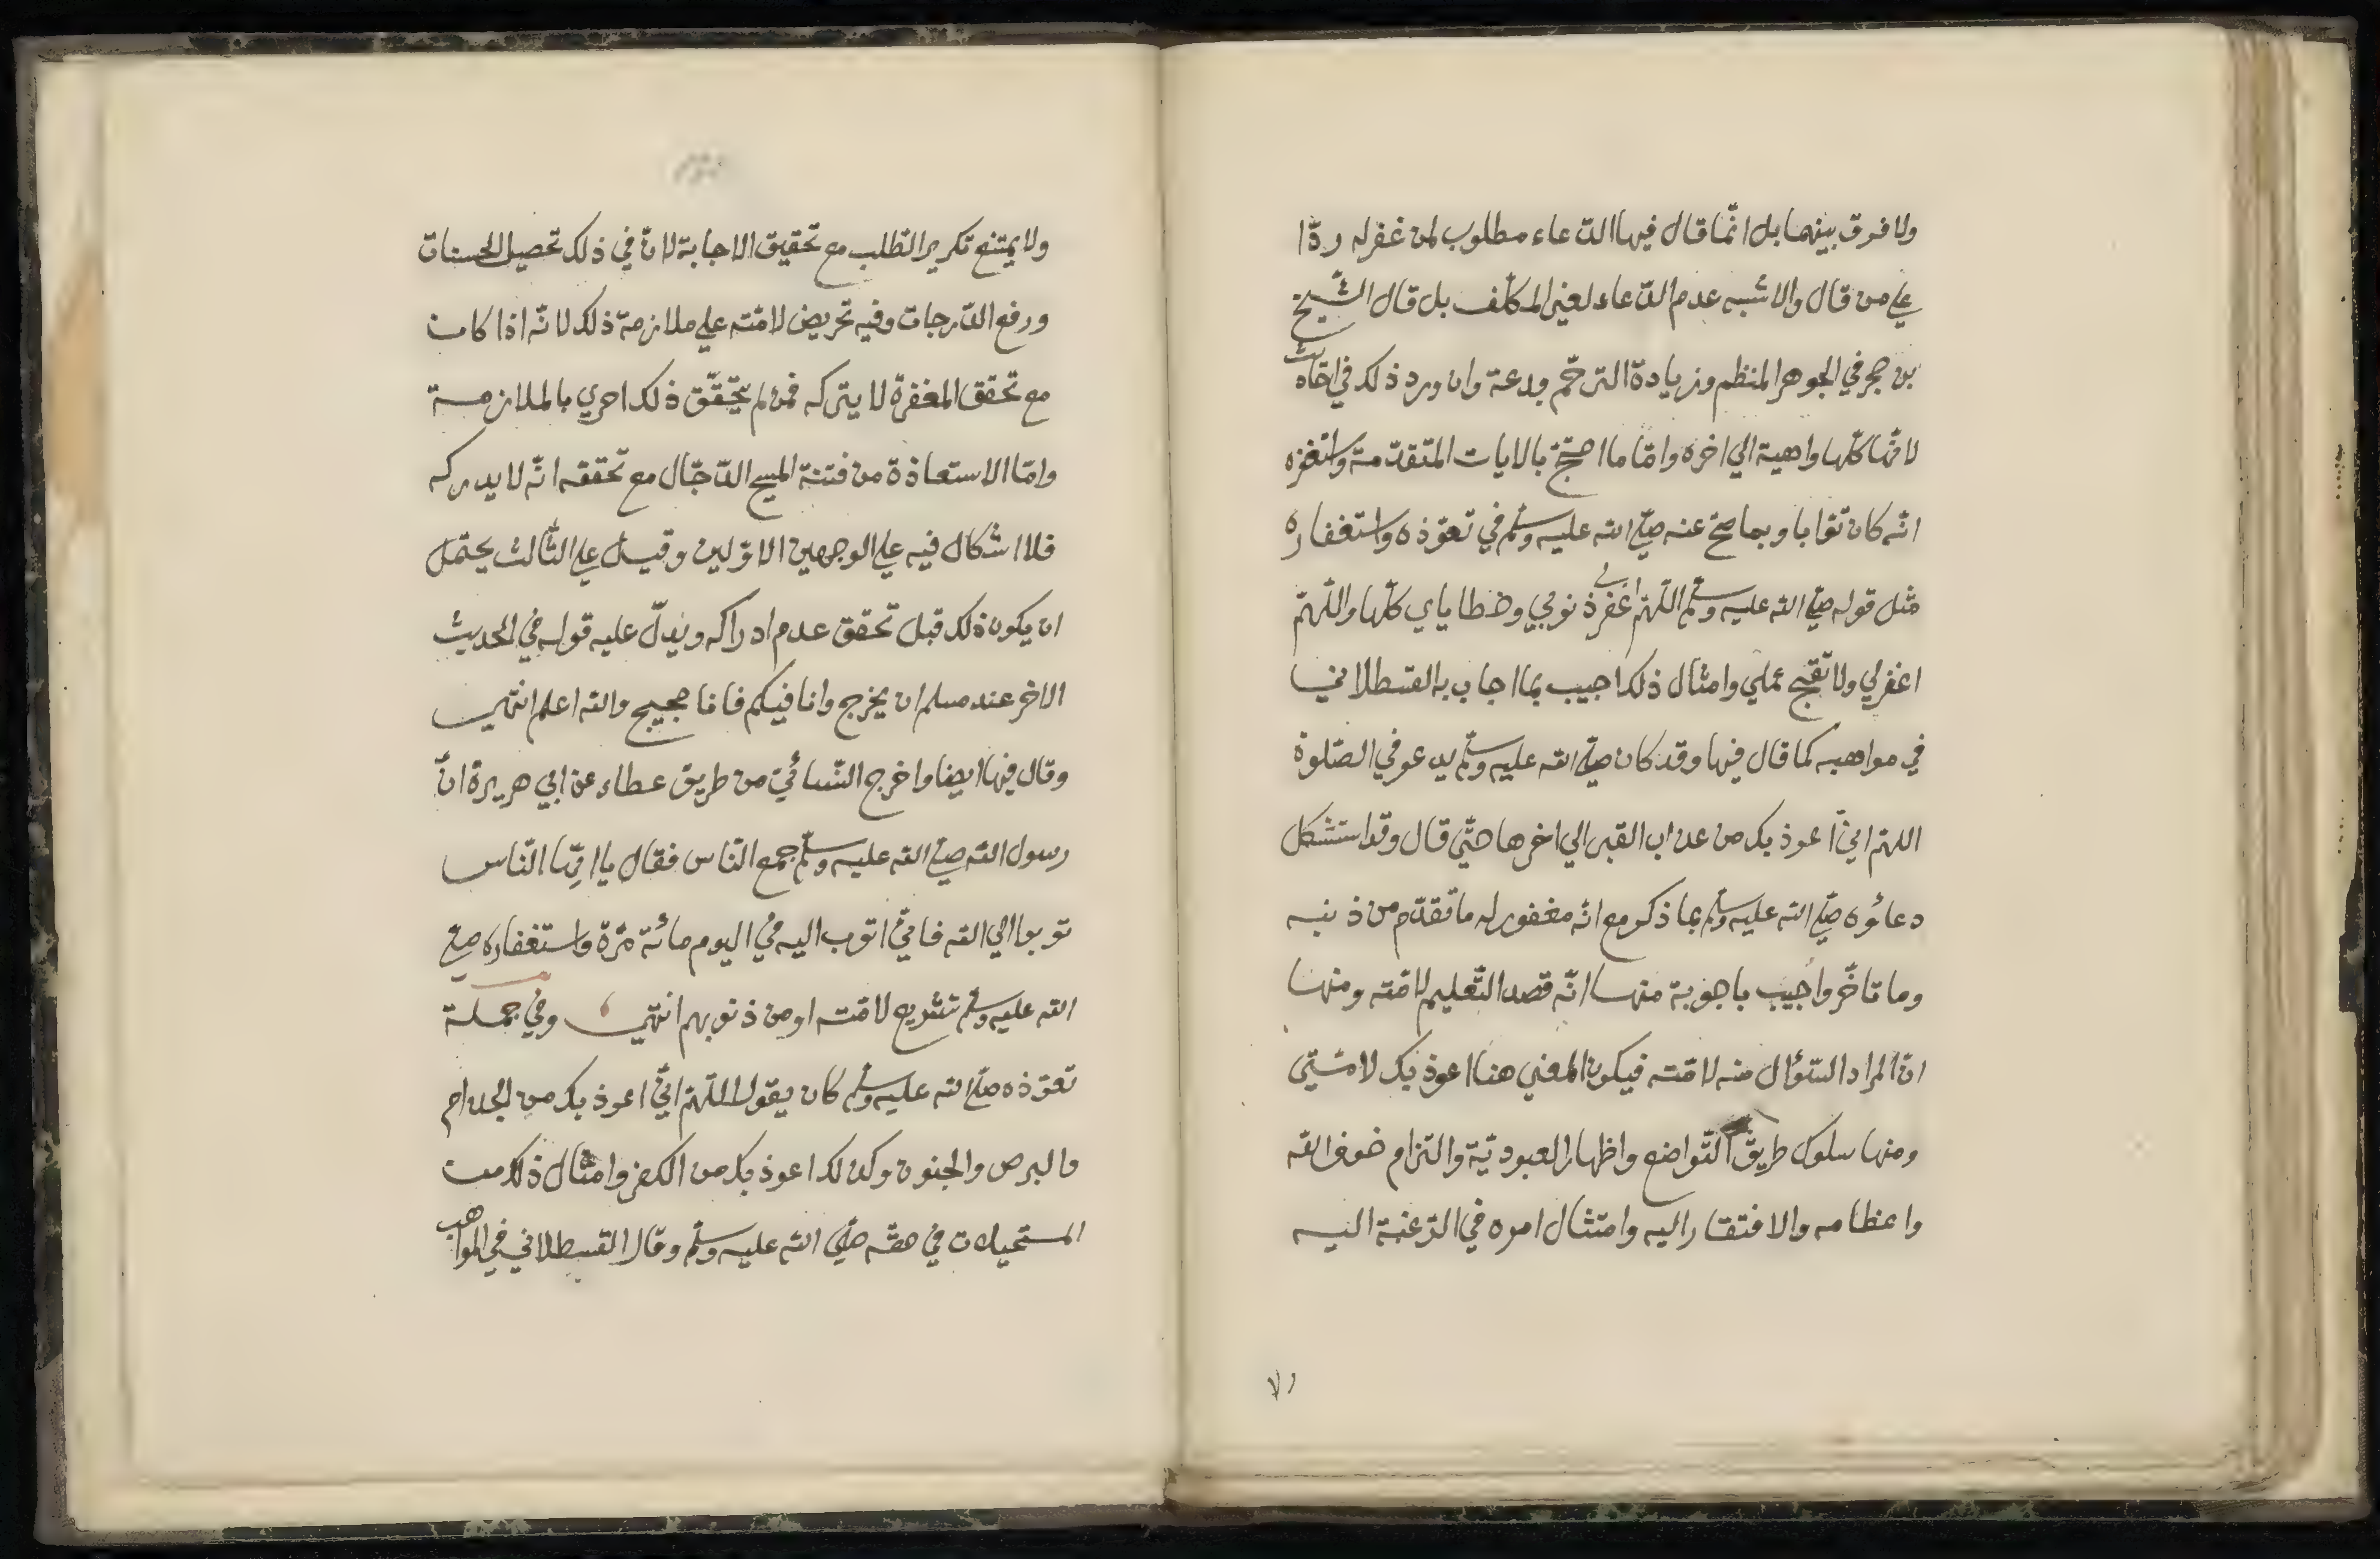 ولا فرق بينهما بل انّما قال فيها الدّعاء مطلوب لمن غفر له ردّا
علي من قال والاشبه عدم الدّعاء لغير المكلّف بل قال الشّيخ
بن حجر في الجوهر المنظم وزيادة الترحّم بدعة وان ورد ذلك في احاديث
لانّها كلّها واهية الي اخره وامّا ما احتجّ بالايات المتقدّمة واستغفره
انّه كان توّابا وبما صحّ عنه صلّي الله عليه وسلّم في تعوّذه واستغفاره
مثل قوله صلّي الله عليه وسلّم اللّهمّ اغفر لي ذنوبي وخطاياي كلّها واللّهمّ
اغفر لي ولا تقبح عملي وامثال ذلك اجيب بما اجاب به القسطلاني
في مواهبه كما قال فيها وقد كان صلّي الله عليه وسلّم يدعو في الصّلوة
اللهمّ انّي اعوذ بك من عذاب القبر الي اخرها حتّي قال وقد استشكل
دعاؤه صلّي الله عليه وسلّم بما ذكر مع انّه مغفور له ما تقدّم من ذنبه
وما تاخّر واجيب باجوبة منها انّه قصد التّعليم لامّته ومنها
انّ المراد السّؤال منه لامّته فيكون المعني هنا اعوذ بك لامّتي
ومنها سلوك طريق التّواضع واظهار العبوديّة والتزام خوف الله
واعظامه والافتقار اليه وامتثال امره في الرّغبة اليه
ولا يمتنع تكرير الطّلب مع تحقيق الاجابة لانّ في ذلك تحصيل الحسنات
ورفع الدّرجات وفيه تحريض لامّته علي ملازمة ذلك لانّه اذا كان
مع تحقق المغفرة لا يتركه فمن لم يتحقّق ذلك احري بالملازمة
وامّا الاستعاذة من فتنة المسيح الدّجّال مع تحققه انّه لا يدركه
فلا اشكال فيه علي الوجهين الاوّلين وقيل علي الثّالث يحتمل
ان يكون ذلك قبل تحقق عدم ادراكه ويدلّ عليه قوله في الحديث
الاخر عند مسلم ان يخرج وانا فيكم فانا حجيج والله اعلم انتهي
وقال فيها ايضا واخرج النّسائيّ من طريق عطاء عن ابي هريرة انّ
رسول الله صلّي الله عليه وسلّم جمع النّاس فقال يا ايّها النّاس
توبوا الي الله فانّي اتوب اليه في اليوم مائة مرّة واستغفاره صلّي
الله عليه وسلّم تشريع لامّته او من ذنوبهم انتهي وفي جملة
تعوّذه صلّي الله عليه وسلّم كان يقول اللّهمّ انّي اعوذ بك من الجذام
والبرص والجنون وكذلك اعوذ بك من الكفر وامثال ذلك من
المستحيلات في حقّه صلّي الله عليه وسلّم وقال القسطلاني في المواهب